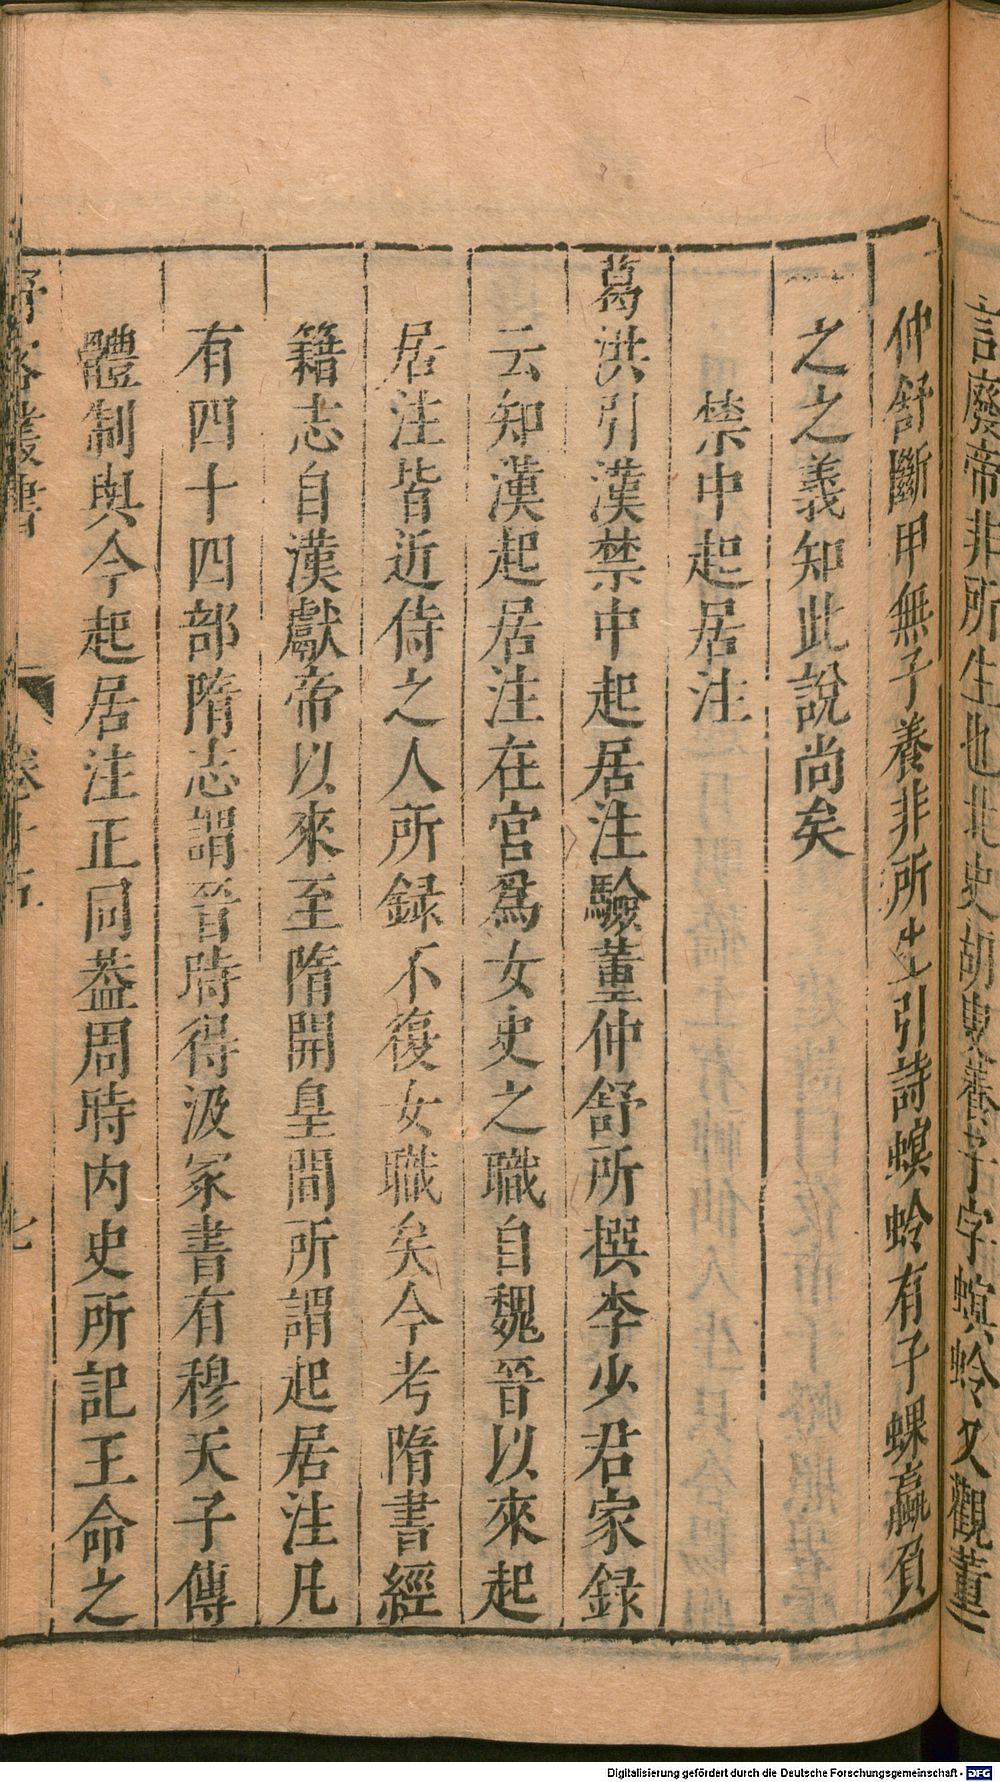 言廢帝非所生也北史胡叟養子字螟蛉又觀董
仲舒斷甲無子養非所生引詩螟蛉有子蜾蠃負
之之義知此說尚矣
禁中起居注
葛洪引漢禁中起居注驗董仲舒所撰李少君家録
云知漢起居注在宮爲女史之職自魏晉以來起
居注皆近侍之人所録不復女職矣今考隋書經
籍志自漢獻帝以來至隋開皇間所謂起居注凡
有四十四部隋志謂晉時得汲冢書有穆天子傳
體制與今起居注正同葢周時内史所記王命之
卷十五
七
Digitalisierung gefördert durch die Deutsche Forschungsgemeinschaft - DFG